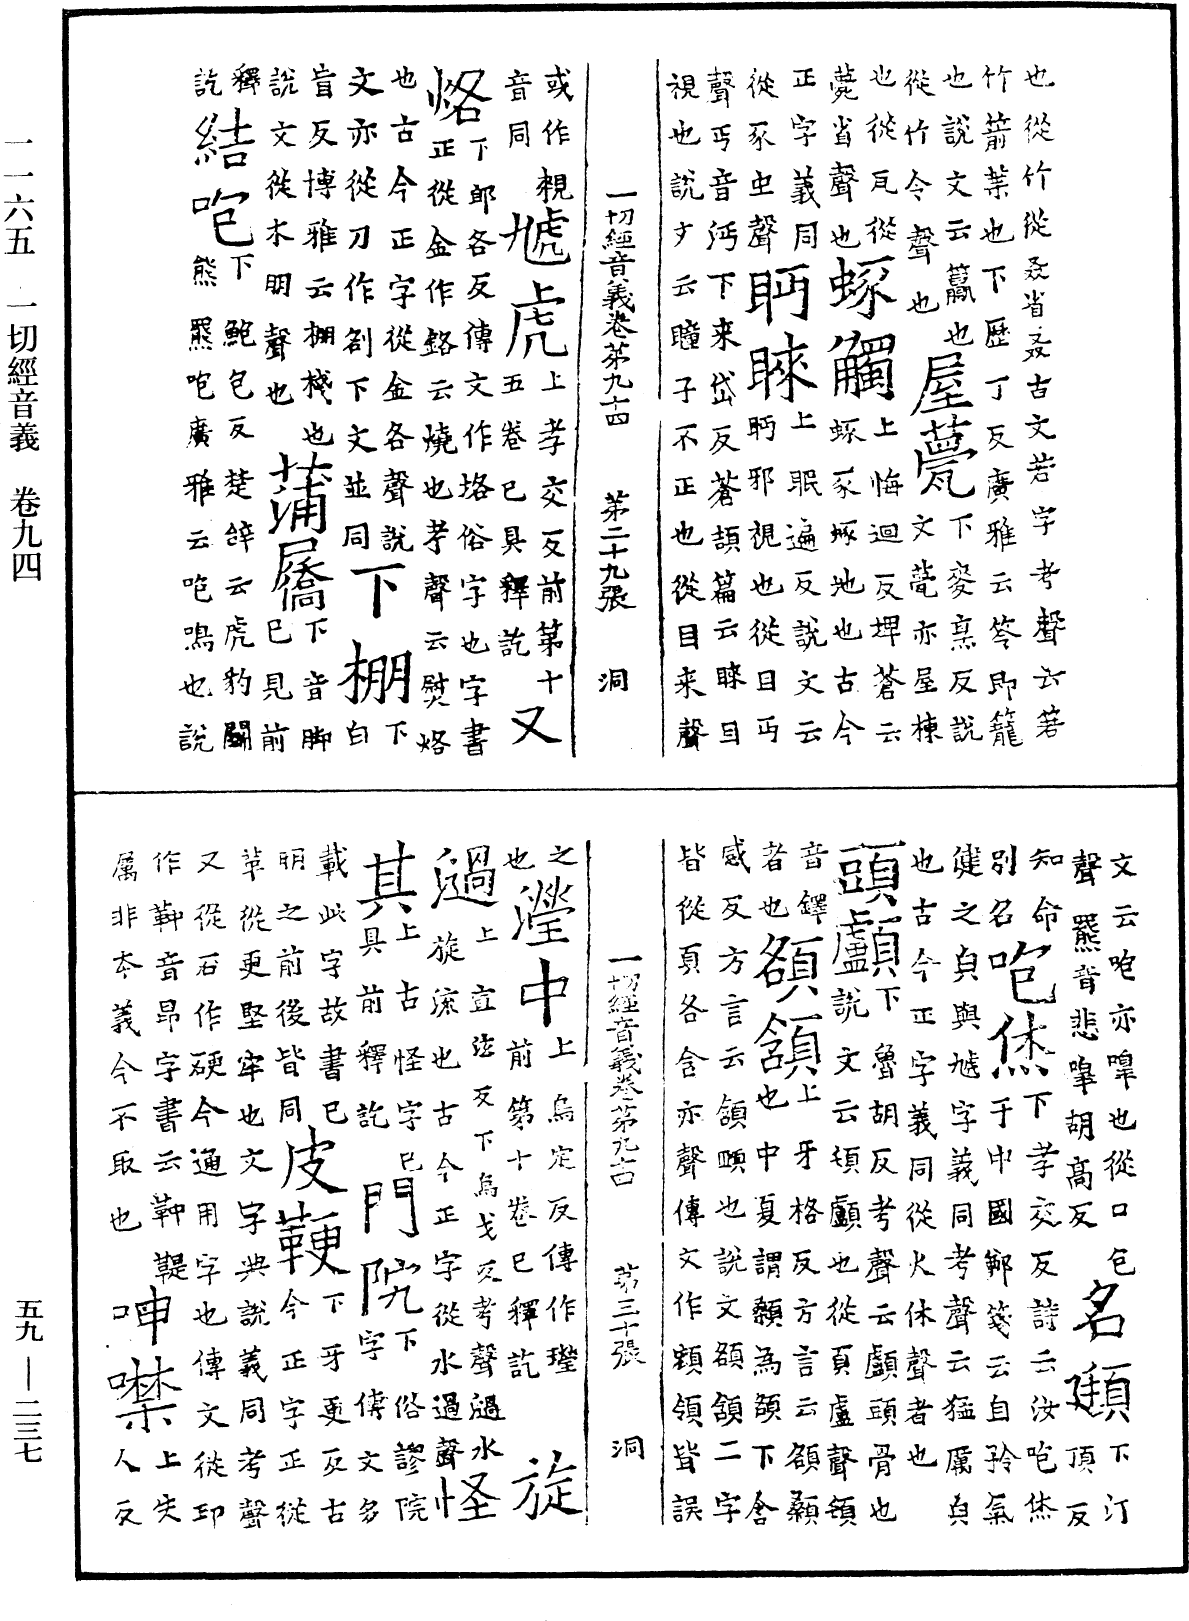 也從竹從叒省叒古文若字考聲云箬
竹箭葉也下歷丁反廣雅云笭即籠
也說文云籯也從竹令聲也屋甍下麥烹反說
文甍亦屋棟也從瓦從薨省聲也蜍觸上悔迴反埤蒼云
蜍豕蜍地也古今正字義同
從豕虫聲眄睞上眠遍反說文云眄邪視也從目丏
聲丏音沔下來岱反蒼頡篇云睞目
視也說文云瞳子不正也從目来聲
一切經音義卷第九十四 第二十九張 洞
或作䚀虓虎上孝交反前第十又
音同五卷已具釋訖
烙下郎各反傳文作垎俗字也字書
正從金作鉻云燒也考聲云熨烙
也古今正字從金各聲說
文亦從刀作剳下文並同下棚下白
盲反博雅云棚棧也
說文從木朋聲也蒲屩下音脚已見前
釋訖結咆下鮑包反楚辝云虎豹鬬
熊羆咆廣雅云咆鳴也說
文云咆亦嘷也從口包
聲羆音悲嘷胡高反名頲下汀頂反
知命咆烋下孝交反詩云汝咆烋
別名于中國鄭箋云自矜氣
健之皃與虓字義同考聲云猛厲皃
也古今正字義同從火休聲者也
頭顱下魯胡反考聲云顱頭骨也
說文云頊顱也從頁盧聲頊
音鐸者也額頷上牙格反方言云額顙
也中夏謂顙為額下含
感反方言云頷頤也說文額頷二字
皆從頁各含亦聲傳文作䫂領皆誤
一切經音義卷第九十四 第三十張 洞
之瀅中上烏定反傳作瑩
也前第十卷已釋訖旋
過上宣㳒反下烏戈反考聲渦水
旋流也古今正字從水過聲怪
其上古怪字已具前釋訖門院下俗謬院字傳文多
載此字故書已
明之前後皆同皮鞕下牙更反古今正字正從
革從更堅牢也文字典說義同考聲
又從石作硬今通用字也傳文從卬
作䩕音昂字書云䩕鞮呻噤上失人反
屬非本義今不取也
一一六五 一切經音義 卷九四
五九—二三七